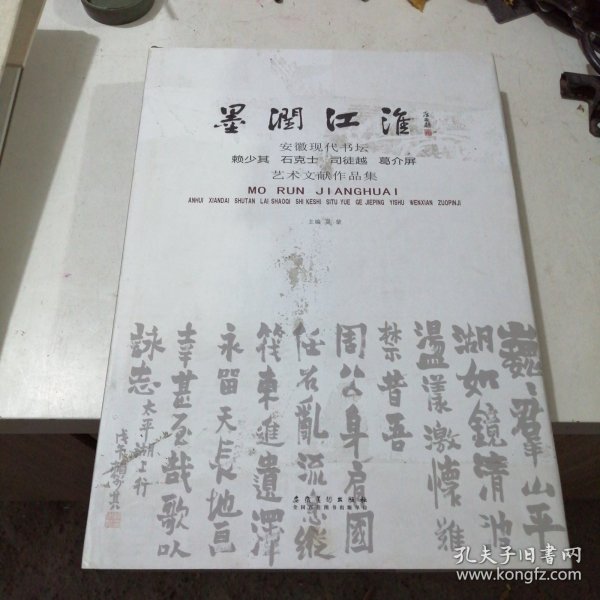 墨潤江淮
安徽现代书坛
赖少其 石克士 司徒越 葛介屏
艺术文献作品集
MO RUN JIANGHUAI
ANHUI XIANDAI SHUTAN LAI SHAOQI SHI KESHI SITU YUE GE JIEPING YISHU WENXIAN ZUOPINJI
主编
群山平
湖如鏡清池
盪漾激懷難
禁昔吾
周公身肩國
任石亂流急縱
筏東進遺澤
永留天長地亘
幸甚至哉歌以
詠志
太平湖上行
安徽美術出版社
孔夫子旧书网
www.kongfz.com